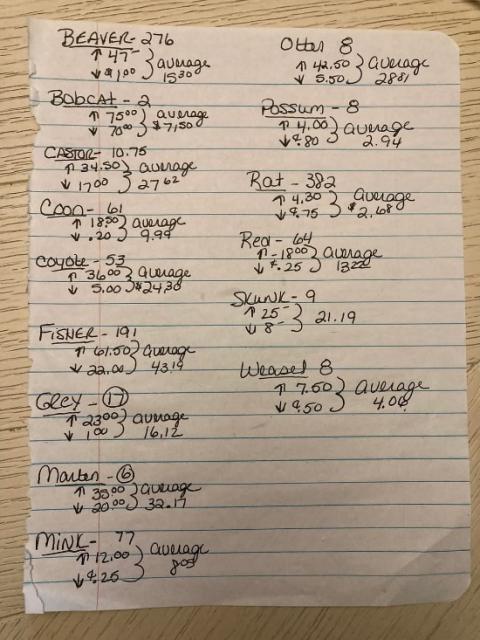 BEAVER - 276
↑ 47 - } average
↓ $1.00 15.30
Bobcat - 2
↑ 75.00 } average
↓ 70.00 $71.50
CASTOR - 10.75
↑ 34.50 } average
↓ 17.00 27.62
Coon - 61
↑ 18.50 } average
↓ .20 9.99
Coyote - 53
↑ 36.00 } average
↓ 5.00 $24.30
FISHER - 191
↑ 61.50 } average
↓ 22.00 43.19
GREY - 17
↑ 23.00 } average
↓ 1.00 16.12
Marten - 6
↑ 35.00 } average
↓ 20.00 32.17
MINK - 77
↑ 12.00 } average
↓ ¢.25
Otter 8
↑ 42.50 } average
↓ 5.50 28.81
Possum - 8
↑ 4.00 } average
↓ ¢.80 2.94
Rat - 382
↑ 4.30 } Average
↓ ¢.75 $2.68
Red - 64
↑ - 18.00 } average
↓ ¢.25
SKUNK - 9
↑ 25 - } 21.19
↓ 8 -
Weasel 8
↑ 7.50 } Average
↓ ¢.50 4.06